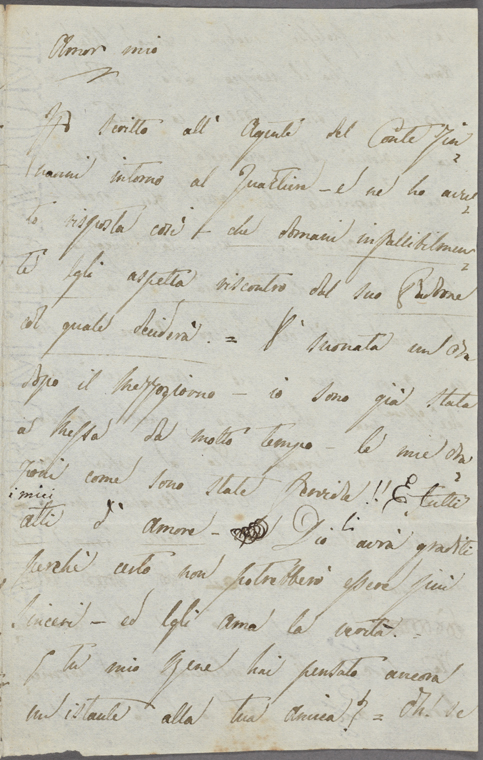 Amor mio
Hò scritto all' Agente del Conte Zin
nanni intorno al Quartier – e ne ho avu
to risposta così – che domani infallibilmen
te Egli aspetta riscontro dal suo Padrone
col quale deciderà. = È suonata un Ora
dopo il Mezzogiorno – io sono già stata
a Messa da molto tempo – le mie Ora
zioni come sono state fervide!! E tutti
i miei
atti d'Amore – Dio li avrà graditi
perchè certo non potrebbero essere più
sinceri – ed Egli ama la verità. =
E tu mio Bene hai pensato ancora
un istante alla tua Amica? = Oh! se